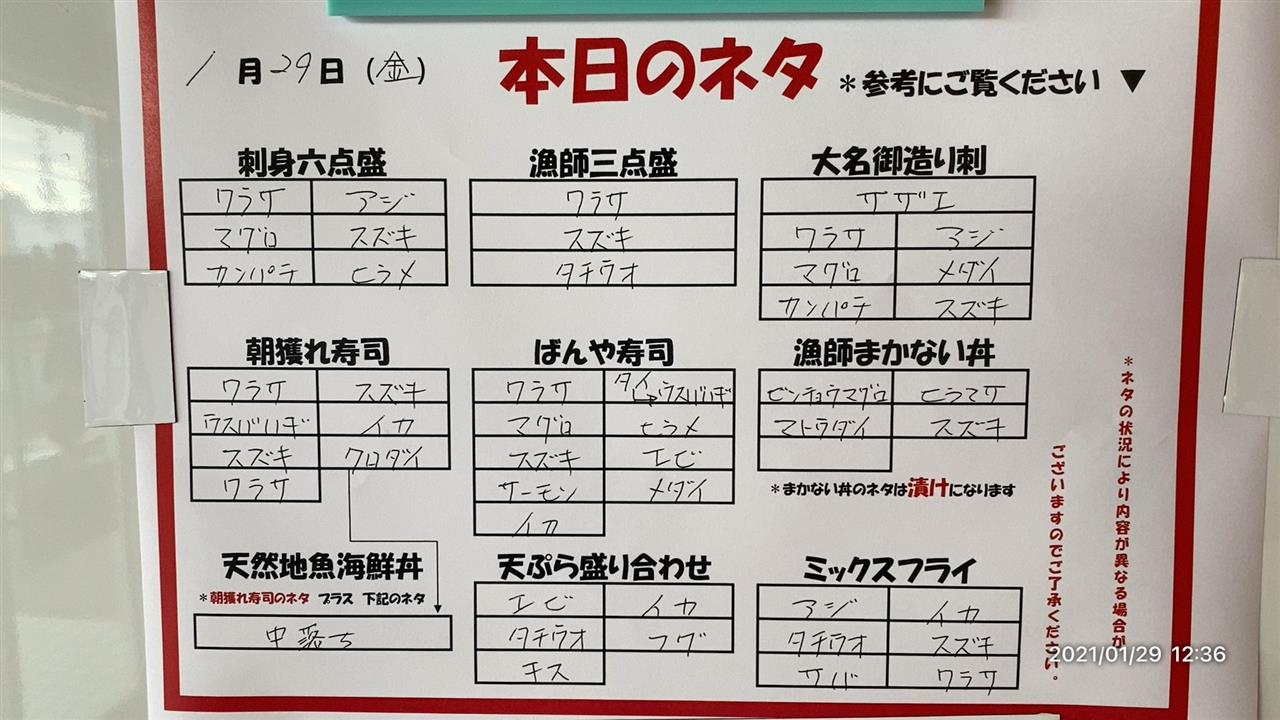 1月29日(金) 本日のネタ *参考にご覧ください ▼
刺身六点盛
ワラサ アジ
マグロ スズキ
カンパチ ヒラメ
漁師三点盛
ワラサ
スズキ
タチウオ
大名御造り刺
サザエ
ワラサ アジ
マグロ メダイ
カンパチ スズキ
朝獲れ寿司
ワラサ スズキ
ウスバハギ イカ
スズキ クロダイ
ワラサ
ばんや寿司
ワラサ タイ ウスバハギ
マグロ ヒラメ
スズキ エビ
サーモン メダイ
イカ
漁師まかない丼
ビンチョウマグロ ヒラマサ
マトウダイ スズキ
*まかない丼のネタは漬けになります
天然地魚海鮮丼
*朝獲れ寿司のネタ プラス 下記のネタ
中落ち
天ぷら盛り合わせ
エビ イカ
タチウオ フグ
キス
ミックスフライ
アジ イカ
タチウオ スズキ
サバ ワラサ
*ネタの状況により内容が異なる場合が
ございますのでご了承ください。
2021/01/29 12:36